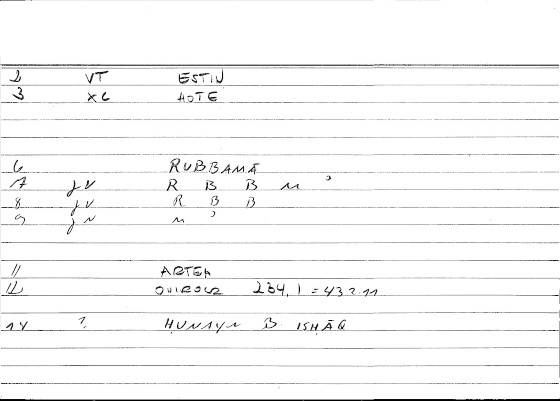 2 VT ESTIU
3 XC HOTE
6 RUBBAMĀ
7 JV R B B M ʾ
8 JV R B B
9 JN M ʾ
11 ARTEA
12 234,1 = 432.11
14 ? ḤUNAYN B ISḤĀQ